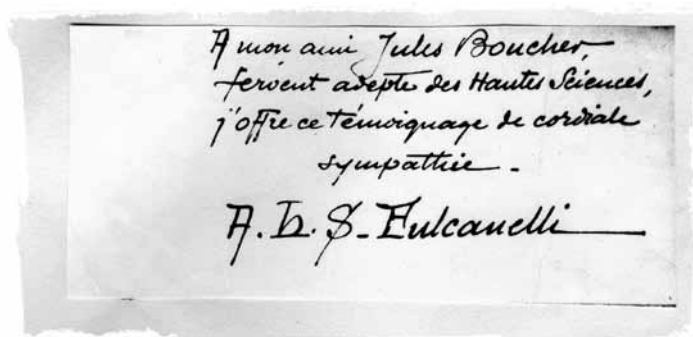 A mon ami Jules Boucher,
fervent adepte des Hautes Sciences,
j'offre ce témoignage de cordiale
sympathie.
A. H. S. Fulcanelli